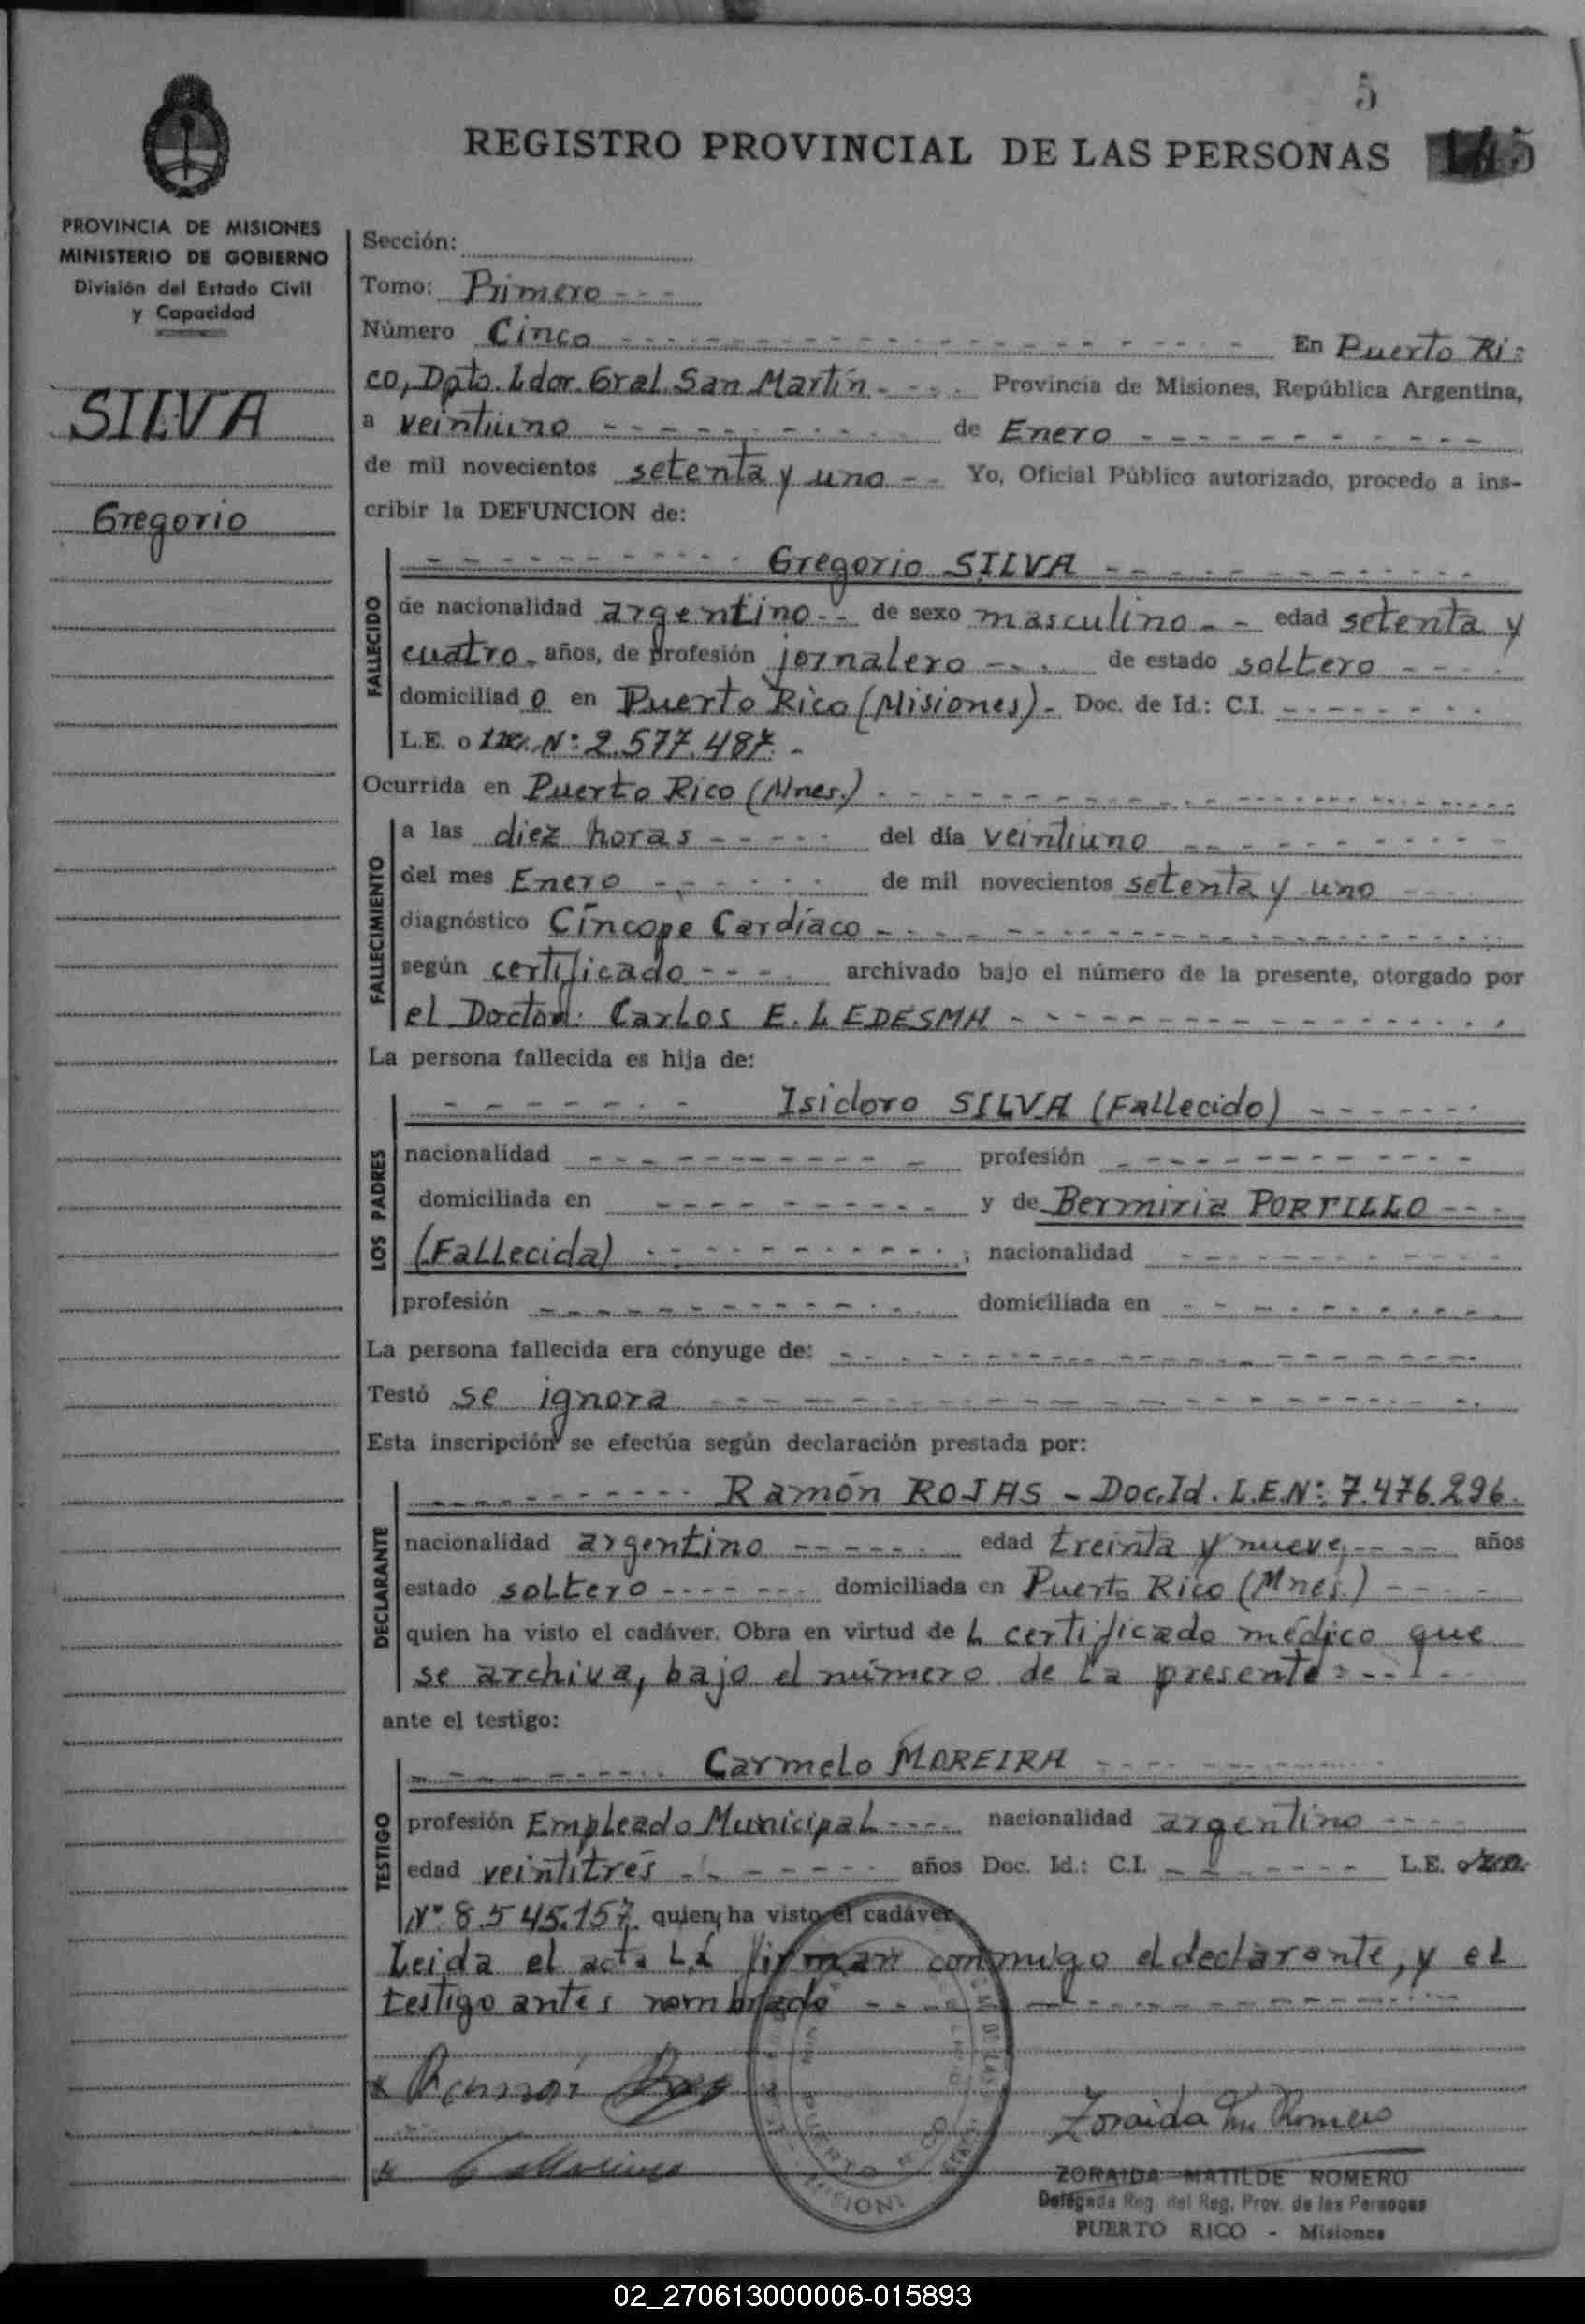 5
REGISTRO PROVINCIAL DE LAS PERSONAS 5
PROVINCIA DE MISIONES
MINISTERIO DE GOBIERNO
División del Estado Civil
y Capacidad
SILVA
Gregorio
Sección:
Tomo: Primero ---
Número Cinco --- En Puerto Ri=
co, Dpto. Ldor. Gral. San Martín --- Provincia de Misiones, República Argentina,
a veintiuno --- de Enero ---
de mil novecientos setenta y uno -- Yo, Oficial Público autorizado, procedo a ins-
cribir la DEFUNCION de:
FALLECIDO
--- Gregorio SILVA ---
de nacionalidad argentino -- de sexo masculino -- edad setenta y
cuatro - años, de profesión jornalero --- de estado soltero ---
domiciliad o en Puerto Rico (Misiones) - Doc. de Id.: C.I. ---
L.E. o Nº 2.577.487. -
Ocurrida en Puerto Rico (Mnes.) ---
FALLECIMIENTO
a las diez horas --- del día veintiuno ---
del mes Enero --- de mil novecientos setenta y uno ---
diagnóstico Cíncope Cardíaco ---
según certificado --- archivado bajo el número de la presente, otorgado por
el Doctor: Carlos E. LEDESMA ---
La persona fallecida es hija de:
LOS PADRES
--- Isidoro SILVA (Fallecido) ---
nacionalidad --- profesión ---
domiciliada en --- y de Bermiria PORTILLO ---
(Fallecida) --- ; nacionalidad ---
profesión --- domiciliada en ---
La persona fallecida era cónyuge de: ---
Testó se ignora ---
Esta inscripción se efectúa según declaración prestada por:
DECLARANTE
--- Ramón ROJAS - Doc. Id. L.E.Nº: 7.476.296.
nacionalidad argentino --- edad treinta y nueve, --- años
estado soltero --- domiciliada en Puerto Rico (Mnes.) ---
quien ha visto el cadáver. Obra en virtud de L certificado médico que
se archiva, bajo el número de la presente: ---
ante el testigo:
TESTIGO
--- Carmelo MOREIRA ---
profesión Empleado Municipal --- nacionalidad argentino ---
edad veintitrés --- años Doc. Id.: C.I. --- L.E.
Nº 8.545.157. quien ha visto el cadáver
Leida el acta La firman conmigo el declarante, y el
testigo antes nombrado ---
Ramón Rojas
C. Moreira
Zoraida M. Romero
PUERTO RICO
ZORAIDA MATILDE ROMERO
Delegada Reg. del Reg. Prov. de las Personas
PUERTO RICO - Misiones
02_270613000006-015893